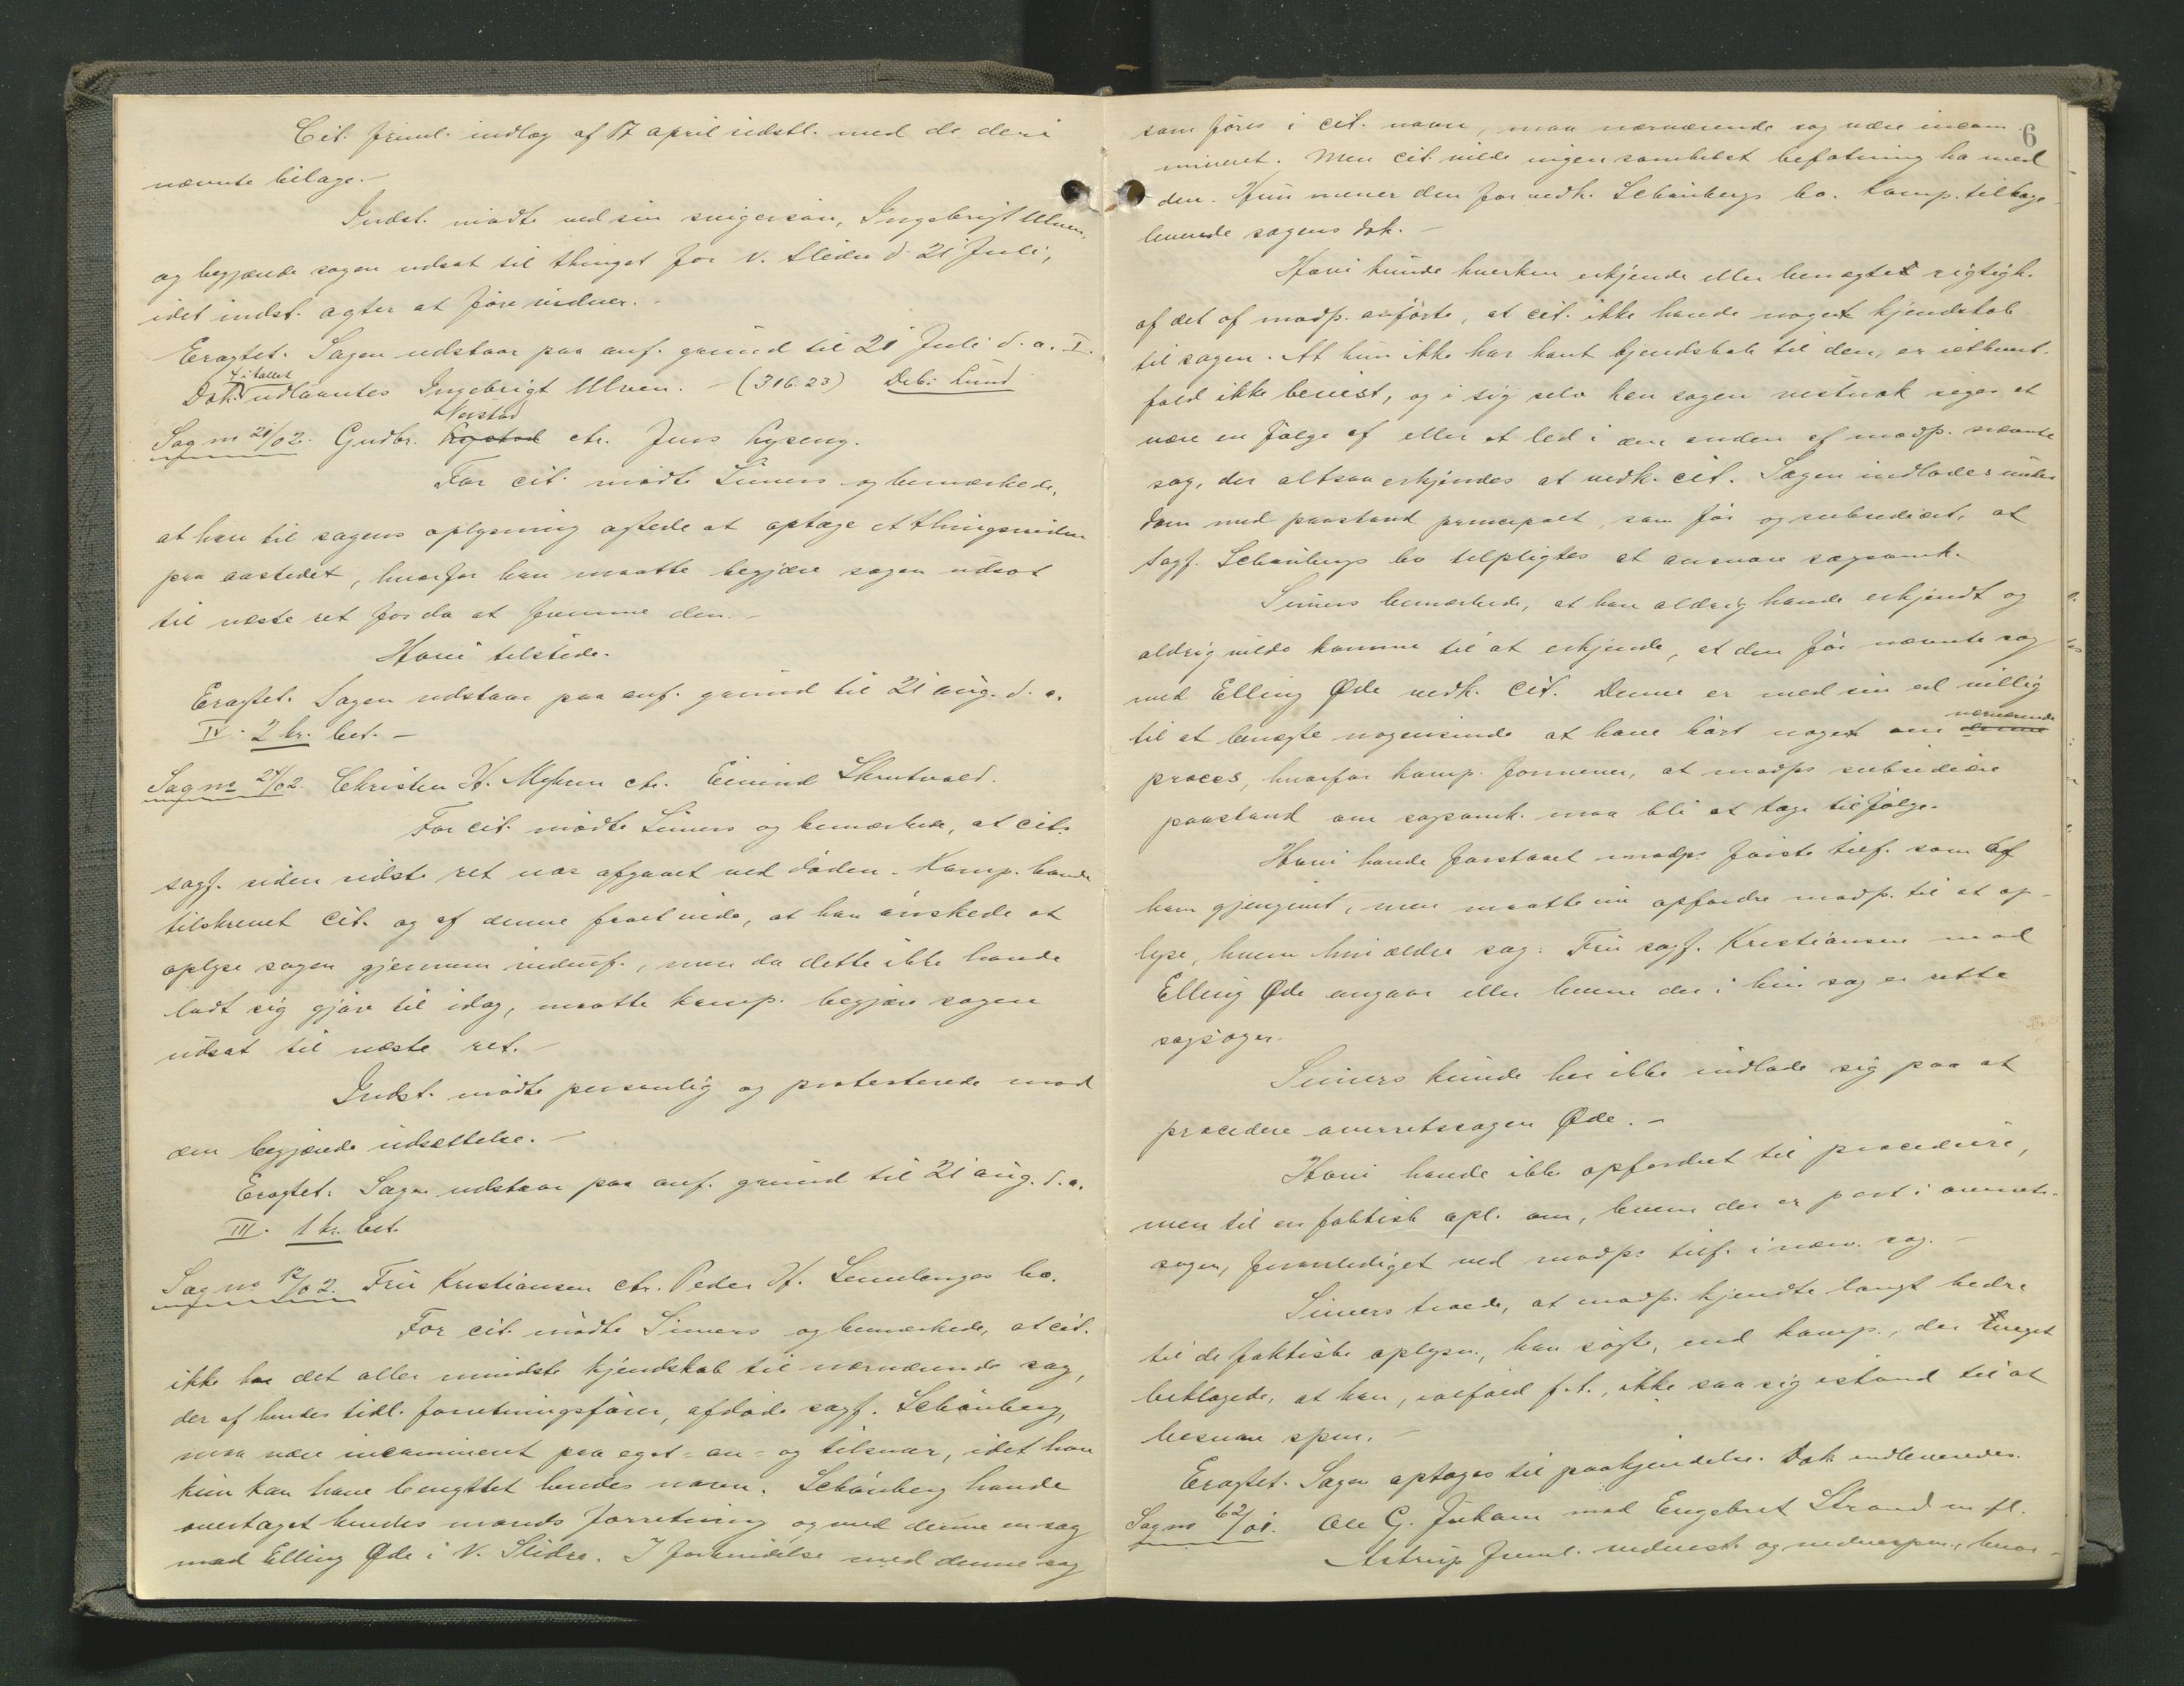 Cit. freml. indlæg af 17 april sidstl. med de deri
nævnte bilage.-
Indst. mødte ved sin svigersøn, Ingebrigt Ulven,
og begjærede sagen udsat til thinget for V. Slidre d. 21 Juli,
idet indst. agter at føre vidner.-
Eragtet. Sagen udstaar paa anf. grund til 21 Juli d. a. I.
4 i tallet
Dok. udlaantes Ingebrigt Ulven. - (316.23) Deb: Lund
Nerstad
Sag no 20/02. Gudbr. Rystad ctr. Jens Ryseng.
For cit. mødte Simers og bemærkede,
at han til sagens oplysning agtede at optage et thingsvidne
paa aastedet, hvorfor han maatte begjære sagen udsat
til næste ret for da at fremme den.-
Hovi tilstede.
Eragtet. Sagen udstaar paa anf. grund til 21 aug. d. a.
IV. 2 kr. bet. -
Sag no 24/02. Christen H. Myhren ctr. Eivind Skrutvold.
For cit. mødte Simers og bemærkede, at cits
sagf. siden sidste ret var afgaaet ved døden. Komp. havde
tilskrevet cit. og af denne faaet vide, at han ønskede at
oplyse sagen gjennem vidnef., men da dette ikke havde
ladt sig gjøre til idag, maatte komp. begjære sagen
udsat til næste ret. -
Indst. mødte personlig og protesterede mod
den begjærede udsættelse. -
Eragtet: Sagen udstaar paa anf. grund til 21 aug. d. a.
III. 1 kr. bet.
Sag no 12/02. Fru Kristiansen ctr. Peder H. Semelenges bo.
For cit. mødte Simers og bemærkede, at cit.
ikke har det aller mindste kjendskab til nærværende sag,
der af hendes tidl. forretningsfører, afdøde sagf. Schønberg,
maa være incamineret paa eget an- og tilsvar, idet han
kun kan have benyttet hendes navn. Schønberg havde
overtaget hendes mands forretning og med denne en sag
mod Elling Øde i V. Slidre. I forbindelse med denne sag
6
som føres i cit. navn, maa nærværende sag være incam-
mineret. Men cit vilde ingensomhelst befatning ha med
den. Hun mener den for vedk. Schønbergs bo. Komp. tilbage-
leverede sagens dok. -
Hovi kunde hverken erkjende eller benægte rigtigh.
af det af modp. anførte, at cit. ikke havde noget kjendskab
til sagen. At hun ikke har havt kjendskab til den, er iethvert-
fald ikke bevist, og i sig selv kan sagen vistnok siges at
være en følge af eller et led i den anden af modp. nævnte
sag, der altsaa erkjendes at vedk. cit. Sagen indlades under
dom med paastand principalt, som før og subsidiært, at
sagf. Schønbergs bo tilpligtes at ansvare sagsomk.
Simers bemærkede, at han aldrig havde erkjendt og
aldrig vilde komme til at erkjende, at den før nævnte sag
med Elling Øde vedk. cit. Denne er med sin ed villig
nærværende
til at benægte nogensinde at have hørt noget om denne
proces, hvorfor komp. formener, at modps subsidiære
paastand om sagsomk. maa bli at tage tilfølge.
Hovi havde forstaaet modps første tilf. som af
ham gjengivet, men maatte nu opfordre modp. til at op-
lyse, hvem hin ældre sag: Fru sagf. Kristiansen mod
Elling Øde angaar eller hvem der i hin sag er rette
sagsøger.
Simers kunde her ikke indlade sig paa at
procedere overretssagen Øde. -
Hovi havde ikke opfordret til procedure,
men til en faktisk opl. om, hvem der er part i overrets-
sagen, foranlediget ved modps tilf. i nærv. sag. -
Simers troede, at modp. kjendte langt bedre
til de faktiske oplysn., han søgte, end komp., der meget
beklagede, at han, ialfald f. t., ikke saa sig istand til at
besvare spm. -
Eragtet. Sagen optages til paakjendelse. Dok indleveredes.
Sag no 62/01. Ole G. Juham mod Engebret Strand m. fl.
Astrup freml. vidnest. og vidnespm., hvor-